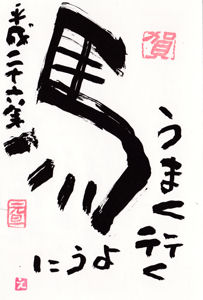 賀
馬
平成二十六年
元旦
うまく
行く
ように